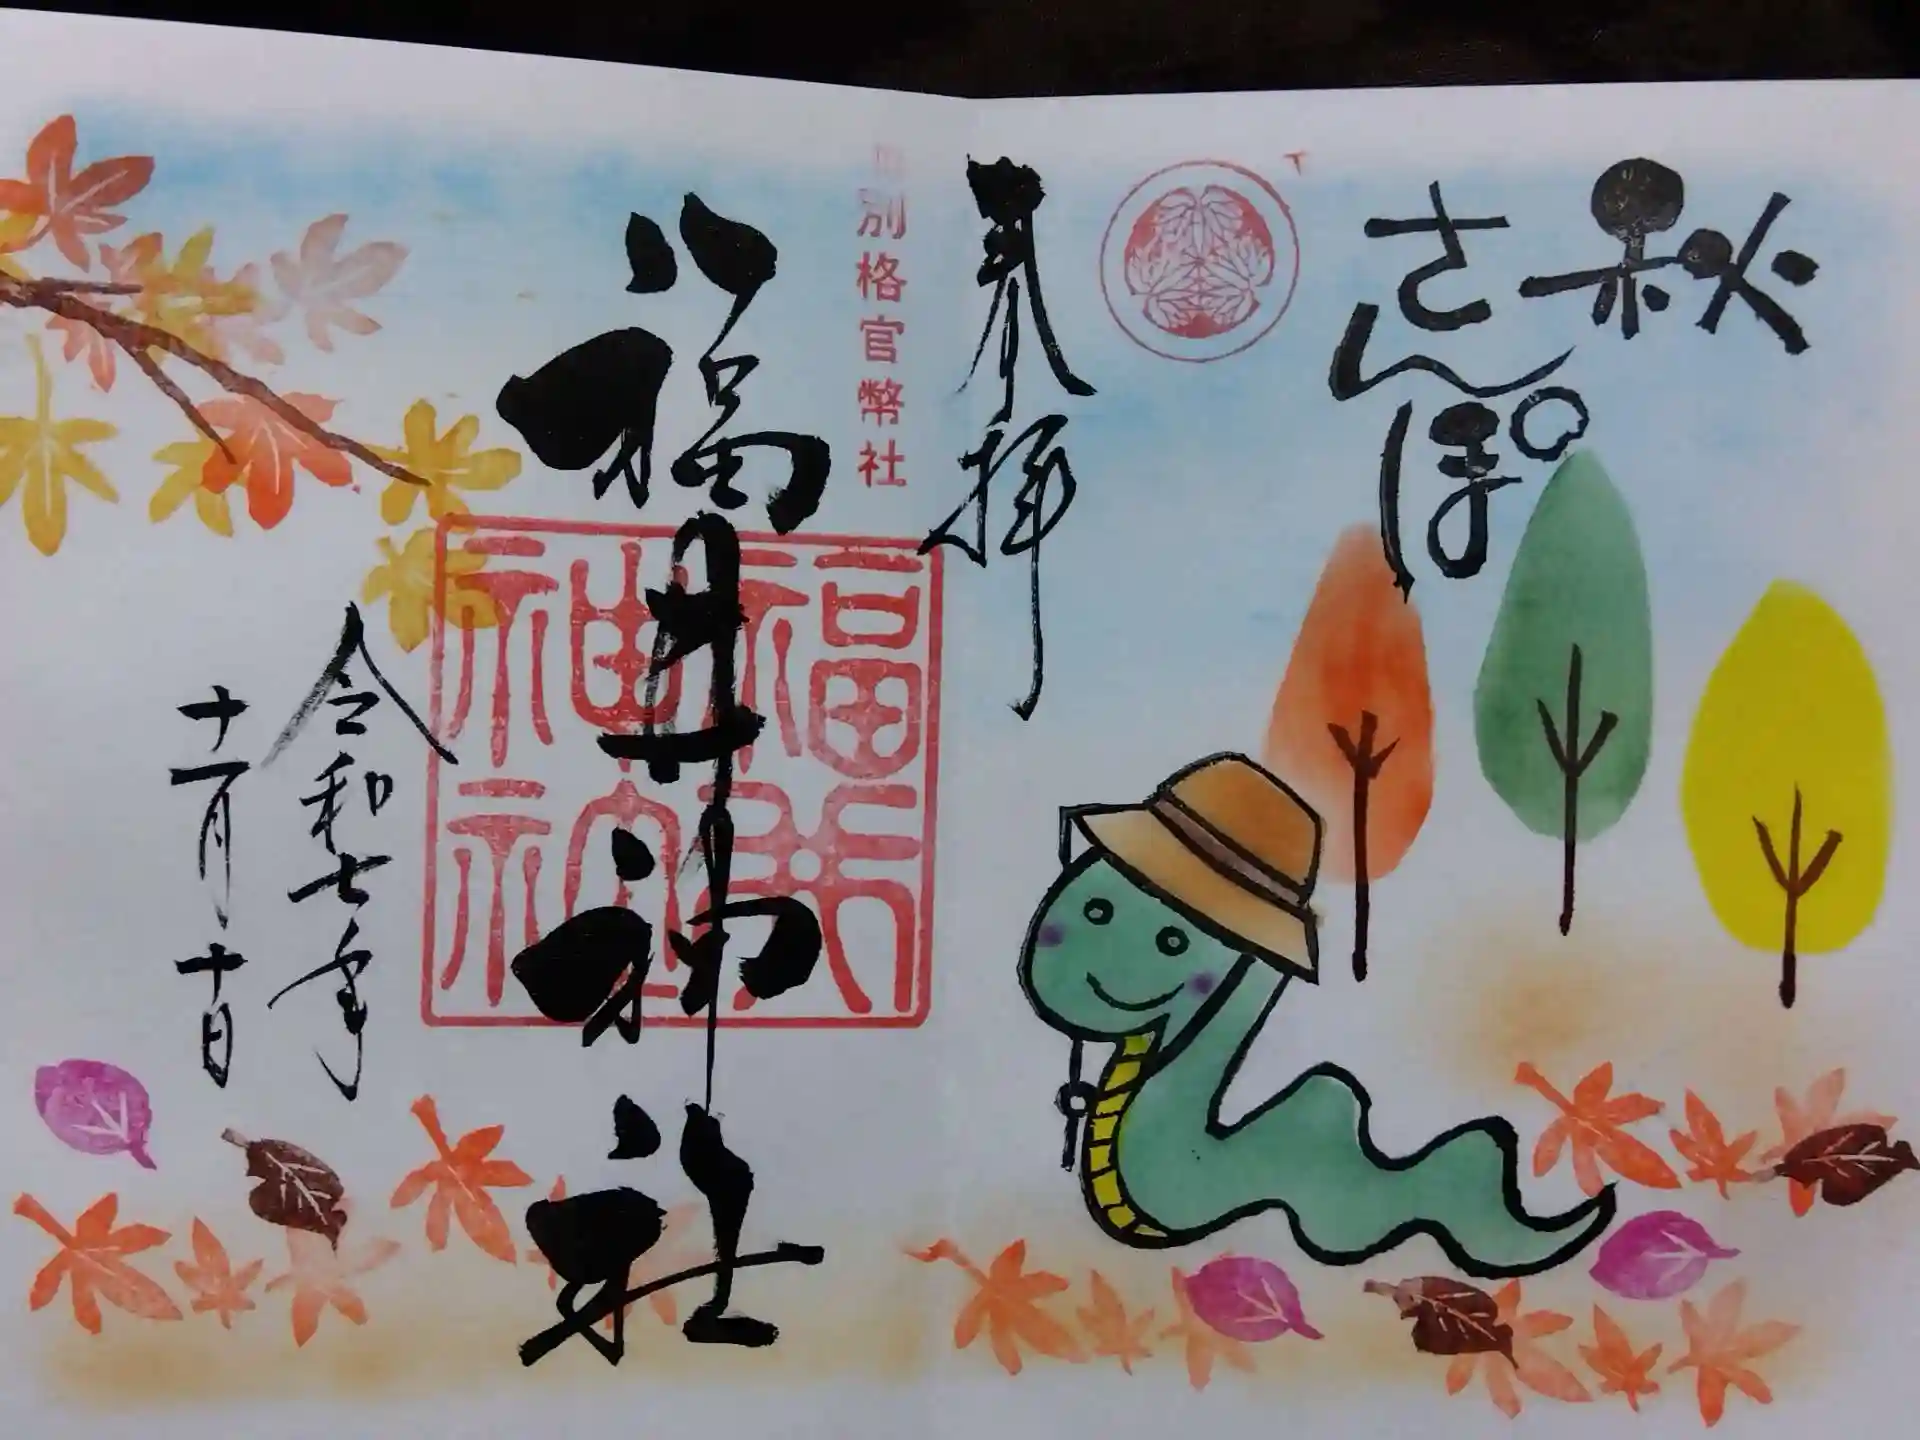 秋
さんぽ
奉拝
旧別格官幣社
福井神社
福井神社
令和七年
十一月十日